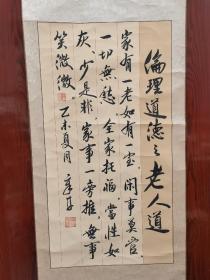 倫理道德之老人道
家有一老如有一宝闲事莫管
一切無愁全家托福當性如
灰少是非家事一旁推無事
笑微微
乙未夏月